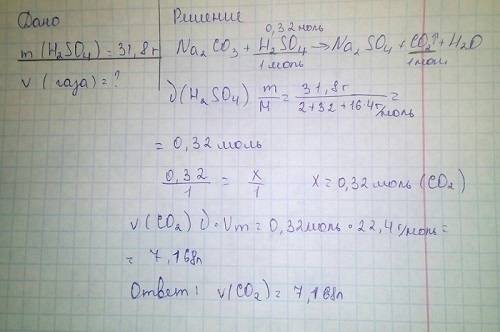 Дано
m (H₂SO₄) = 31,8 г
v (газа) = ?
Решение
0,32 моль
Na₂CO₃ + H₂SO₄ → Na₂SO₄ + CO₂↑ + H₂O
1 моль 1 моль
ν(H₂SO₄) m/M = 31,8г/2+32+16·4г/моль =
= 0,32 моль
0,32/1 = x/1 x = 0,32 моль (CO₂)
v(CO₂) ν · Vm = 0,32 моль · 22,4г/моль =
= 7,168л
Ответ: v(CO₂) = 7,168л